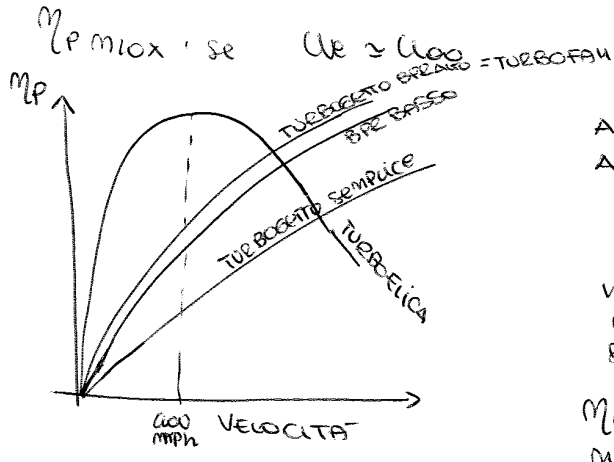 ηp max se Ue ≃ U∞
ηp
TURBOGETTO BPR ALTO = TURBOFAN
BPR BASSO
TURBOGETTO SEMPLICE
TURBOELICA
400
mph
VELOCITÀ